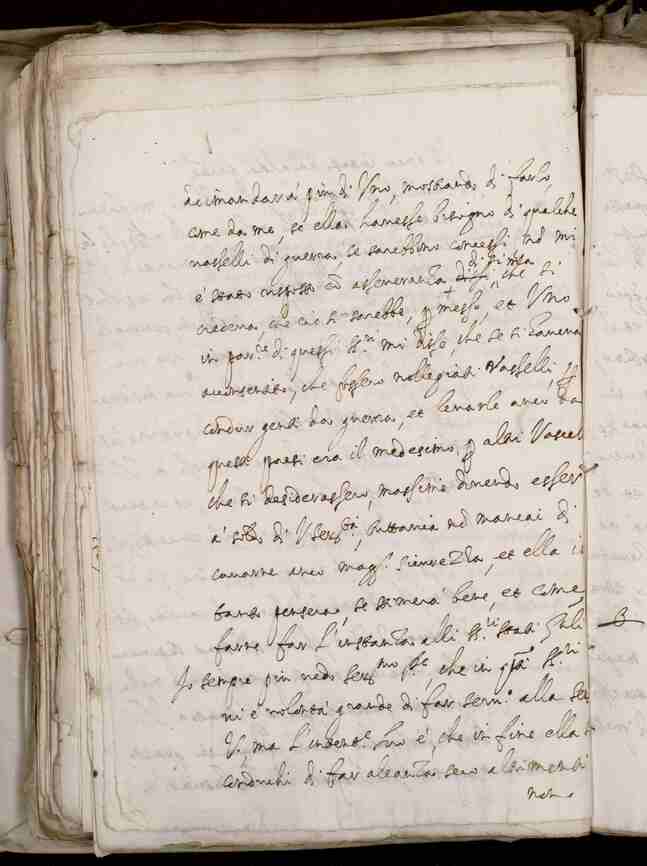 dimandarà più di Uno, mostrando di farlo,
come da me, se ella havesse bisogno di qualche
vasselli di guerra se sarebbono concessi, nè mi
è stato risposto con asseveranza di sì, che si
credeva, che ciò si sarebbe permesso, et Uno
in par.re di questi SS.ri mi disse, che se si haveva
acconsentito, che fossero nollegiati Vasselli, per
condur genti da guerra, et levarle anco da
questi paesi era il medesimo per altri Vascel
che si desiderassero, massime dovendo esser
a soldo di V. Ser.tà, tuttavia nè mancai di
cavarne anco magg.r sicurezza, et ella in
tanto penserà, se stimerà bene, et come
farne far l'instanza alli SS.ri Stati Gñli
Io sempre più vedo Ser.mo P.e, che in q̃sti SS.ri
vi è volontà grande di far serv.o alla Ser
V.a, ma l'intent.e loro è, che in fine ella
conduchi di far alleanza seco altrimenti
non